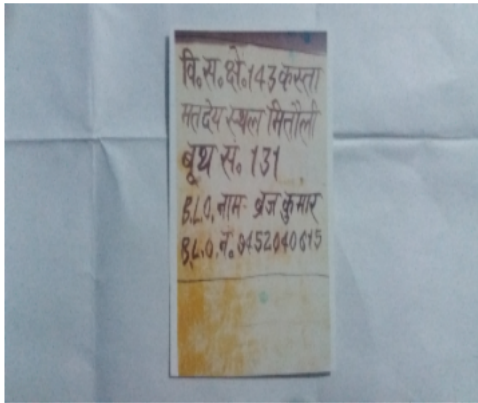 वि॰स॰क्षे॰143कस्ता
मतदेय स्थल मितौली
बूथ स॰ 131
B.L.O. नाम- ब्रज कुमार
B.L.O. नं॰ 9452040615